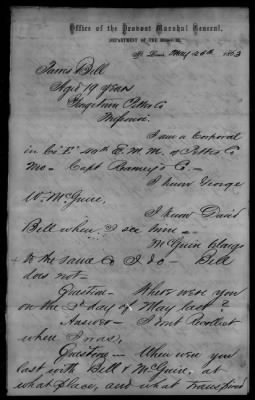 Office of the Provost Marshal General,
DEPARTMENT OF THE MISSOURI,
St. Louis May 26th 1863
James Bell
Age 19 years
Georgetown Pettis Co
Missouri.
I am a Corporal
in Co "E" 40th E.M.M. of Pettis Co
Mo - Capt Ramey's Co -
I know George
Wm McGuire,
I know David
Bell when I see him -
McGuire belongs
to the same Co I do - Bell
does not -
Question - Where were you
on the day of May last?
Answer - I dont Recollect
when I was,
Question - When were you
last with Bell & McGuire, at
what place, and what transpired